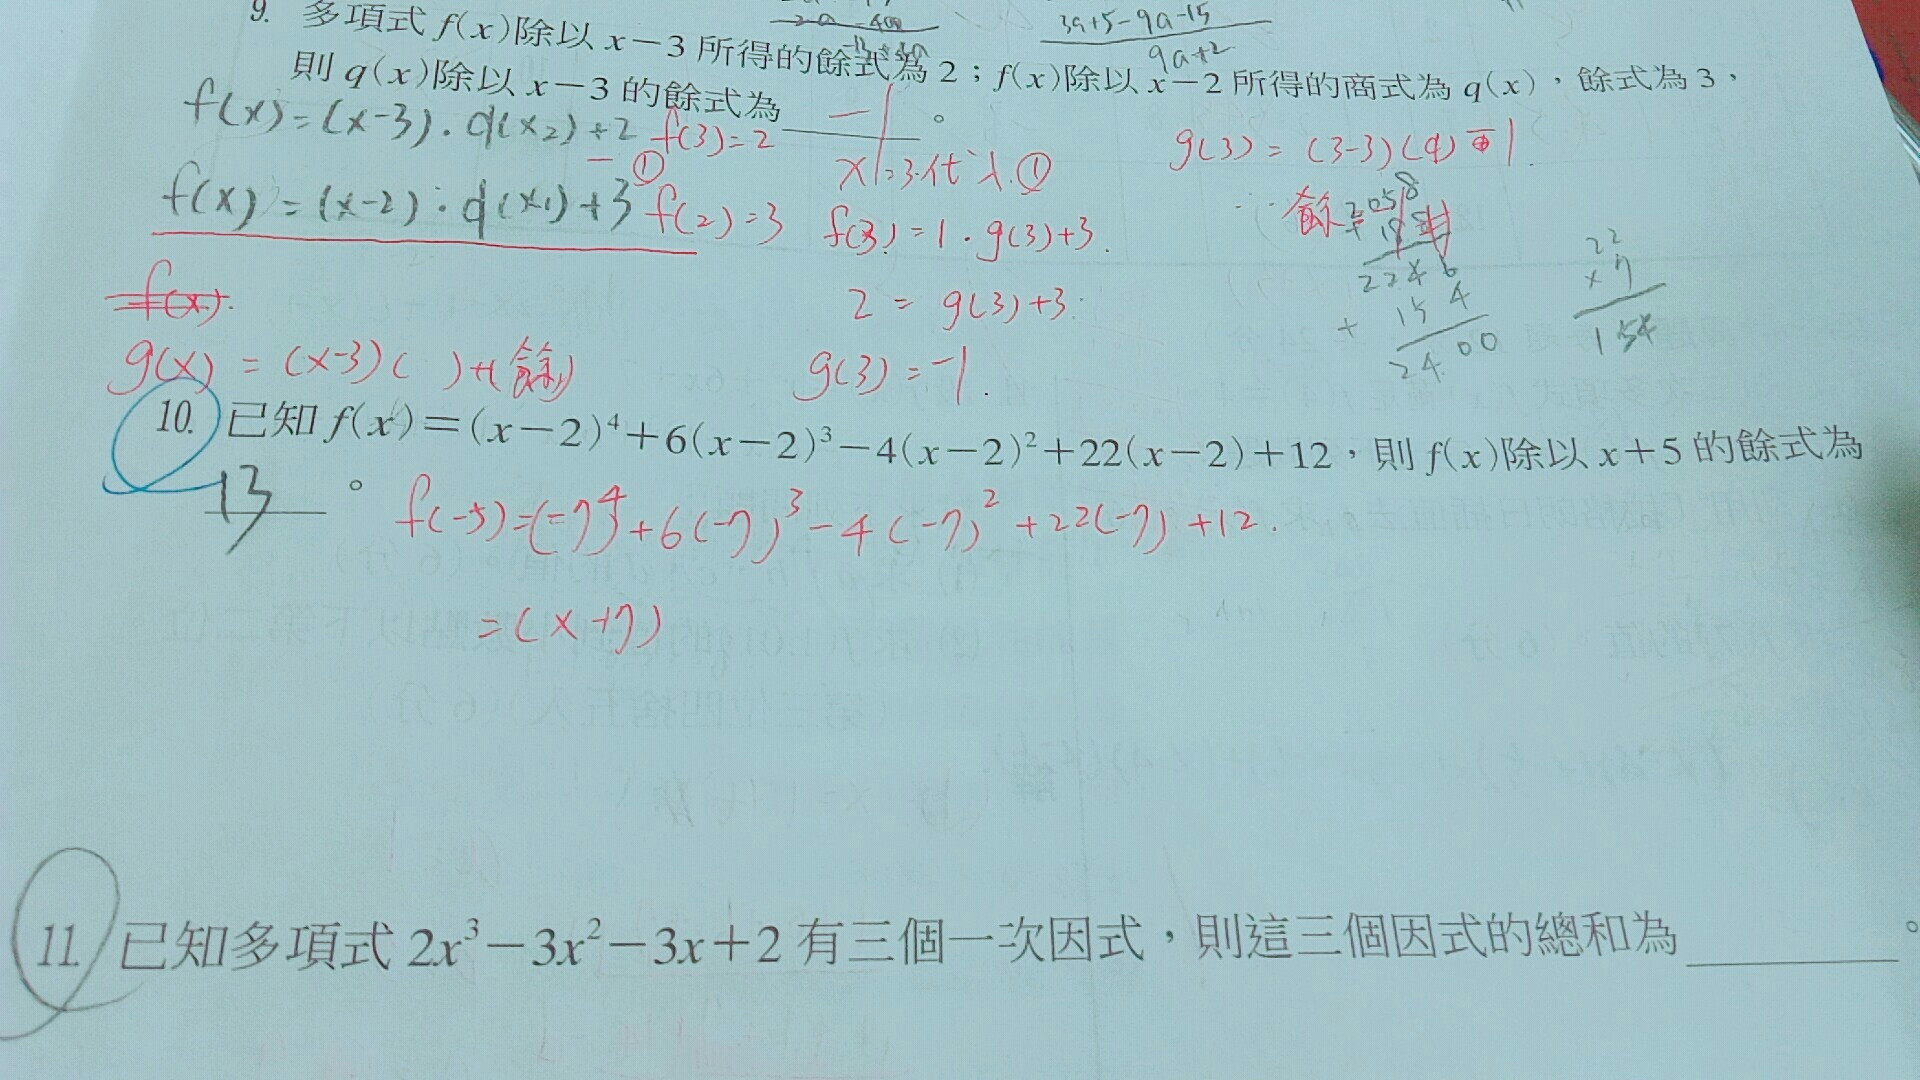 3a+5-9a-15
9a+2
9. 多項式 f(x)除以 x－3 所得的餘式為 2；f(x)除以 x－2 所得的商式為 q(x)，餘式為 3，
則 q(x)除以 x－3 的餘式為 -1 。
f(x)=(x-3)·q(x2)+2 f(3)=2
①
x=3代入①
g(3)=(3-3)(q)
f(x)=(x-2)·q(x1)+3 f(2)=3
f(3)=1·g(3)+3.
餘
2=g(3)+3
f(x)
g(x)=(x-3)( )+(餘)
g(3)=-1.
2058
2246
+ 154
2400
22
×7
154
10. 已知 f(x)＝(x－2)⁴＋6(x－2)³－4(x－2)²＋22(x－2)＋12，則 f(x)除以 x＋5 的餘式為
13 。
f(-5)=(-7)⁴+6(-7)³-4(-7)²+22(-7)+12.
=(x+7)
11. 已知多項式 2x³－3x²－3x＋2 有三個一次因式，則這三個因式的總和為 。